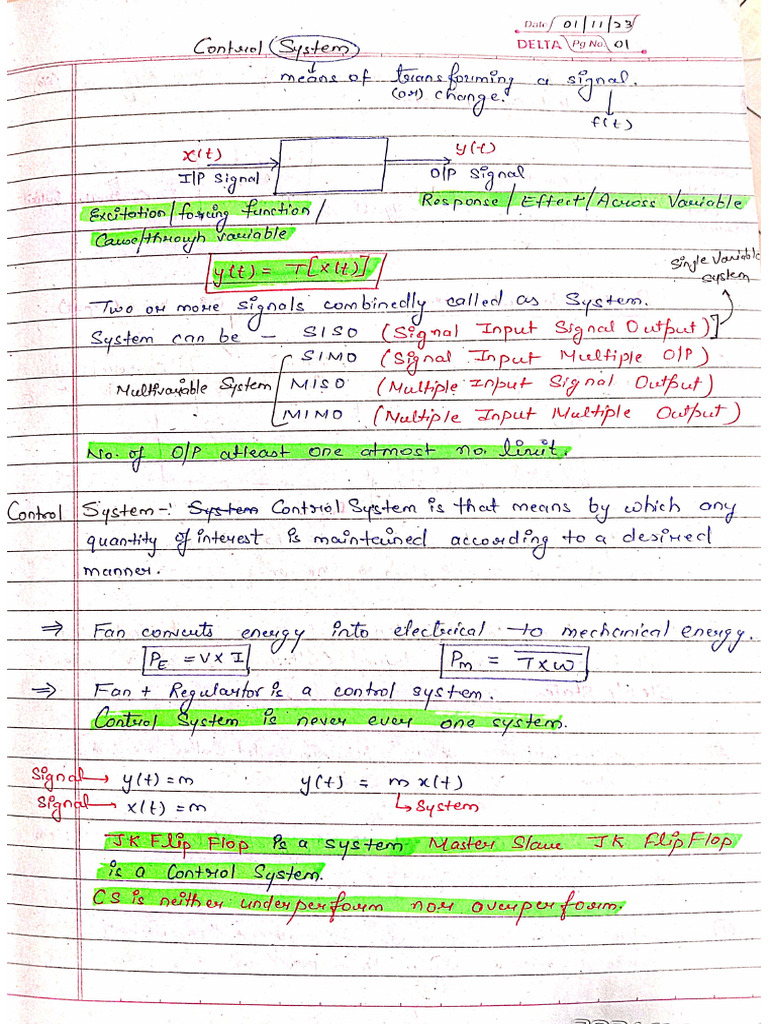 Date 01/11/23
DELTA Pg No. 01
Control System
means of transforming a signal.
(or) change.
f(t)
x(t)
y(t)
I/P Signal
O/P Signal
Excitation/forcing function/
Response/Effect/Across Variable
Cause/through variable
y(t) = T[x(t)]
Single Variable
System
Two or more signals combinedly called as System.
System can be - SISO (Signal Input Signal Output)]
SIMO (Signal Input Multiple O/P)
Multivariable System MISO (Multiple Input Signal Output)
MIMO (Multiple Input Multiple Output)
No. of O/P atleast one atmost no. limit.
Control System-: System Control System is that means by which any
quantity of interest is maintained according to a desired
manner.
⇒ Fan converts energy into electrical to mechanical energy.
PE = V X I
Pm = T X W
⇒ Fan + Regulartor is a control system.
Control System is never ever one system.
Signal → y(t) = m
y(t) = m x(t)
Signal → x(t) = m
↳ System
JK Flip Flop is a system Master Slave JK Flip Flop
is a Control System.
CS is neither underperform nor overperform.